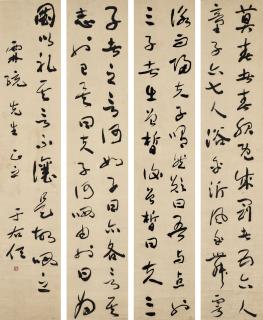 莫春者春服既成冠者五六人
童子六七人浴乎沂風乎舞雩
詠而歸夫子喟然歎曰吾與點也
三子者出曾皙後曾皙曰夫三
子者之言何如子曰亦各言其
志也已矣曰夫子何哂由也曰為
國以禮其言不讓是故哂之
先生正之 于右任